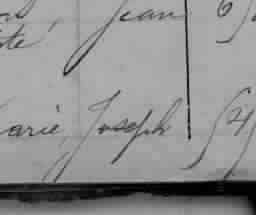 Jean 6)
ité
arie Joseph (4)